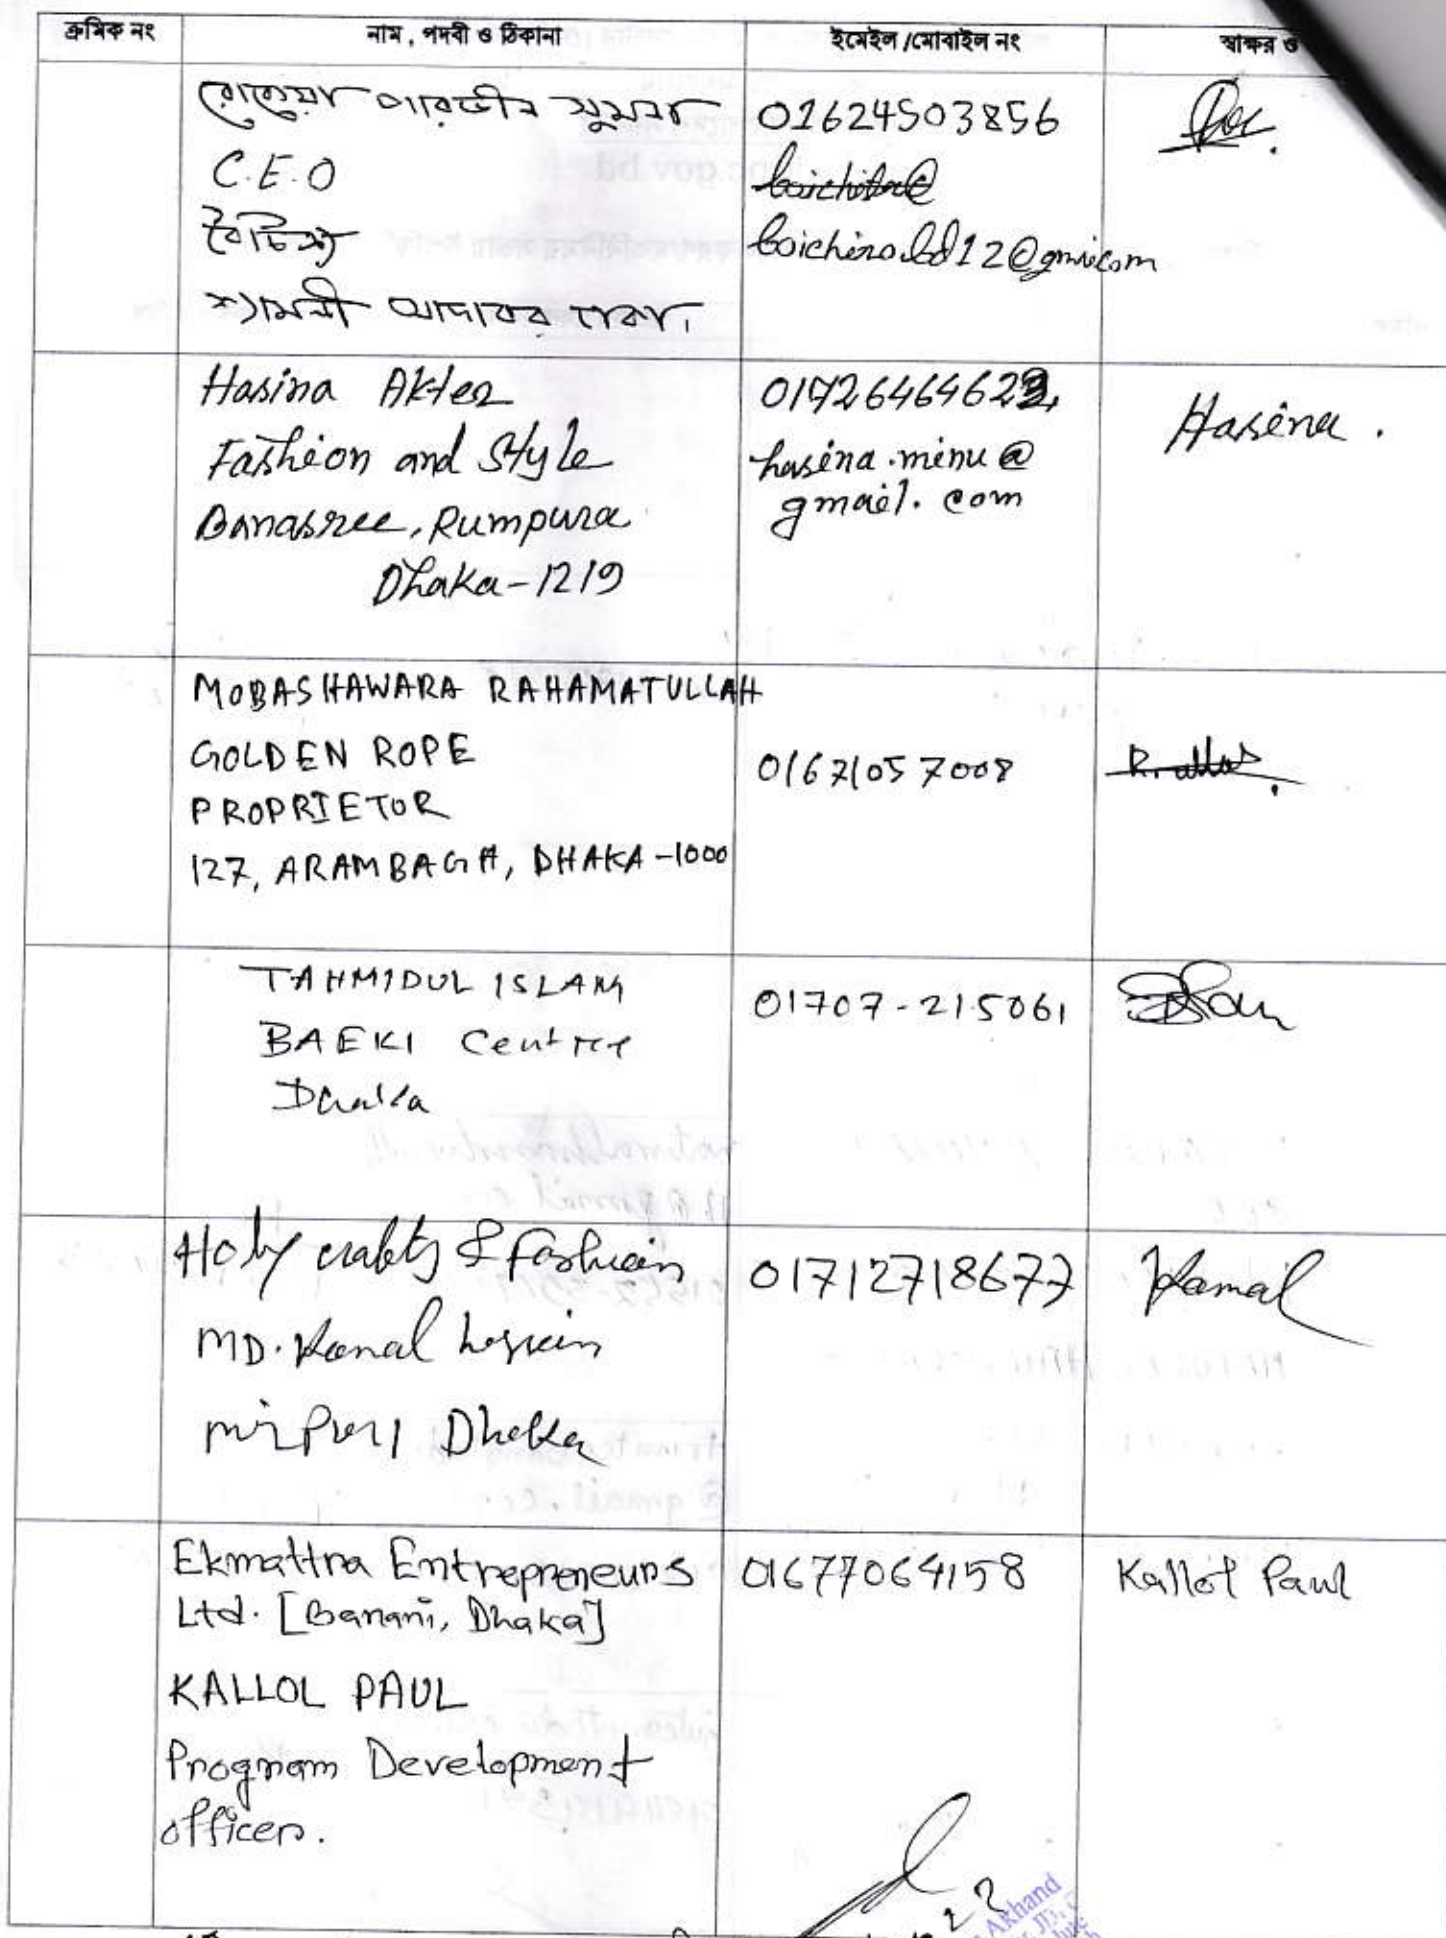 ক্রমিক নং
নাম, পদবী ও ঠিকানা
ইমেইল/মোবাইল নং
স্বাক্ষর ও
রোকেয়া পারভীন সুমনা
C.E.O
বৈচিত্র্য
শ্যামলী আদাবর ঢাকা।
01624503856
boichitra@
boichiro.bd12@gmai.com
Hasina Akter
Fashion and Style
Banasree, Rumpura
Dhaka-1219
hasina.minu@
gmail.com
Hasina.
MOBASHAWARA RAHAMATULLAH
GOLDEN ROPE
PROPRIETOR
127, ARAMBAGH, DHAKA-1000
01671057008
TAHMIDUL ISLAM
BAEKI Centre
Dhaka
01707-215061
Holy crafts & fashion
MD. Kamal hossain
mirpur1 Dhaka
01712718677
Kamal
Ekmattra Entrepreneurs
Ltd. [Banani, Dhaka]
KALLOL PAUL
Program Development
officer.
01677064158
Kallol Paul
Akhand